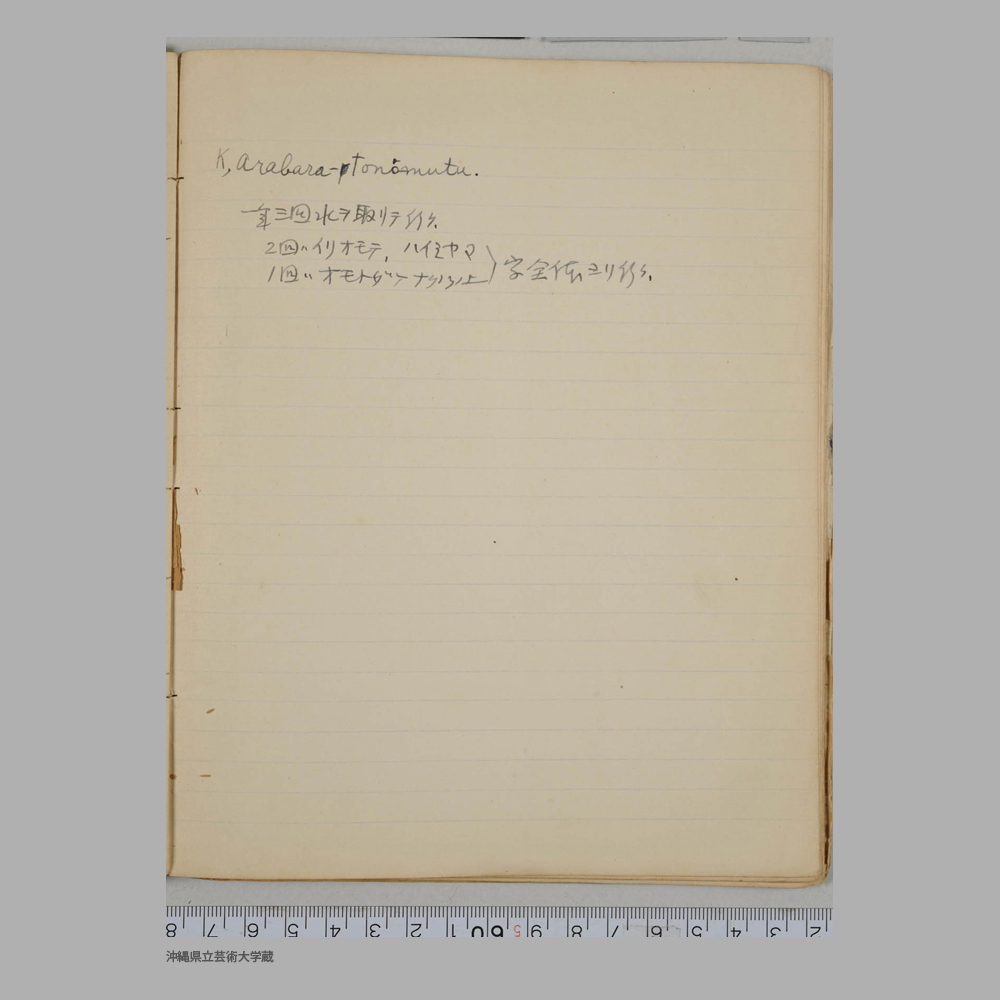 K, arabara-tonömutu.
年三回水ヲ取リテ行ク.
2回ハイリオモテ, ハイミヤマ
1回ハオモトダケ
字全体ヨリ行ク.
8 7 6 5 4 3 2 1 60 5 9 8 7 6 5 4 3 2
沖縄県立芸術大学蔵